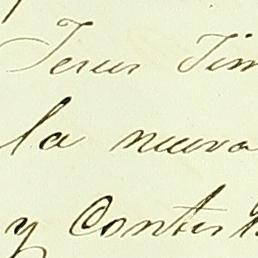 Jesus Jim
la nueva
y Contest